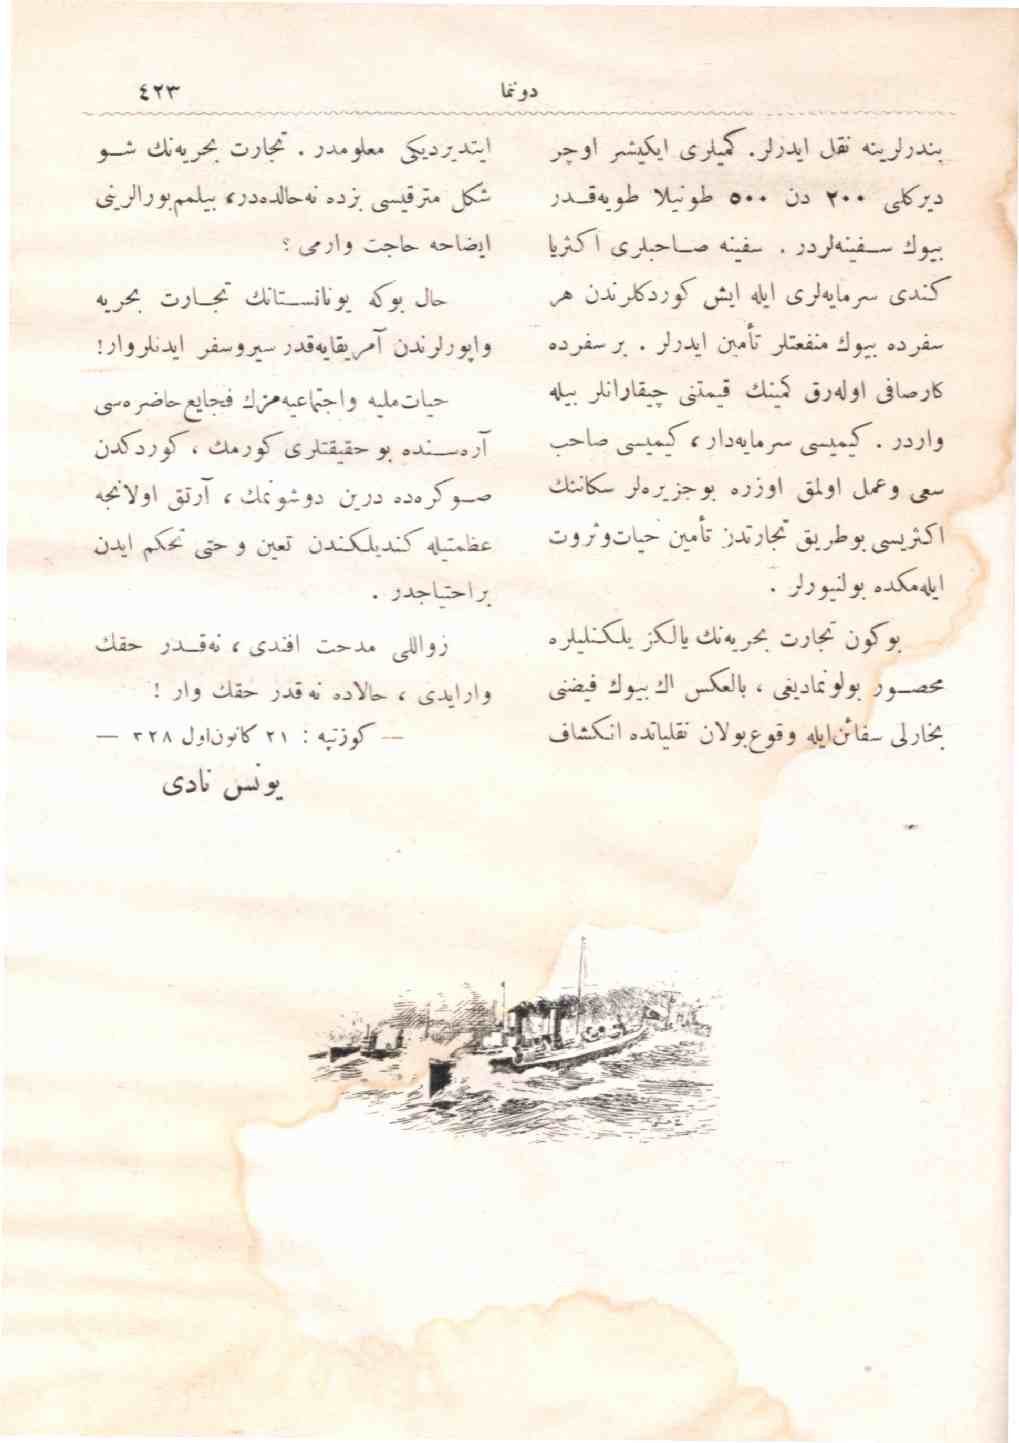 دوننما
٤٢٣
بندرلرینه نقل ایدرلر. كمیلری ایكیشر اوچر
دیركلی ٢٠٠ دن ٥٠٠ طونیلا طویه‌قــدر
بیوك ســفینه‌لردر . سفینه صــاحبلری اكثریا
كندی سرمایه‌لری ایله ایش كوردكلرندن هر
سفرده بیوك منفعتلر تأمین ایدرلر . بر سفرده
كارصافی اوله‌رق كمینك قیمتنی چیقارانلر بیله
واردر . كیمیسی سرمایه‌دار، كیمیسی صاحب
سعی وعمل اولمق اوزره بوجزیره‌لر سكاننك
اكثریسی بوطریق تجارتدن تأمین حیات‌وثروت
ایله‌مكده بولنیورلر .
بوكون تجارت بحریه‌نك یالكز یلكنلیلره
محصــور بولونمادیغی ، بالعكس اك بیوك فیضنی
بخارلی سفائن‌ایله وقوع‌بولان نقلیاتده انكشاف
ایتدیردیكی معلومدر . تجارت بحریه‌نك شــو
شكل مترقیسی بزده نه‌حالده‌در، بیلمم‌بورالرینی
ایضاحه حاجت وارمی ؟
حال بوكه یونانســتانك تجــارت بحریه
واپورلرندن آمریقایه‌قدر سیروسفر ایدنلروار!
حیات‌ملیه واجتماعیه‌مزك فجایع‌حاضره‌سی
آره‌ســنده بو حقیقتلری كورمك ، كوردكدن
صــوكره‌ده درین دوشونمك ، آرتق اولانجه
عظمتیله كندیلكندن تعین و حتی تحكم ایدن
براحتیاجدر .
زواللی مدحت افندی ، نه‌قــدر حقك
وارایدی ، حالاده نه‌قدر حقك وار !
— كوزتپه : ٢١ كانون‌اول ٣٢٨ —
یونس نادی